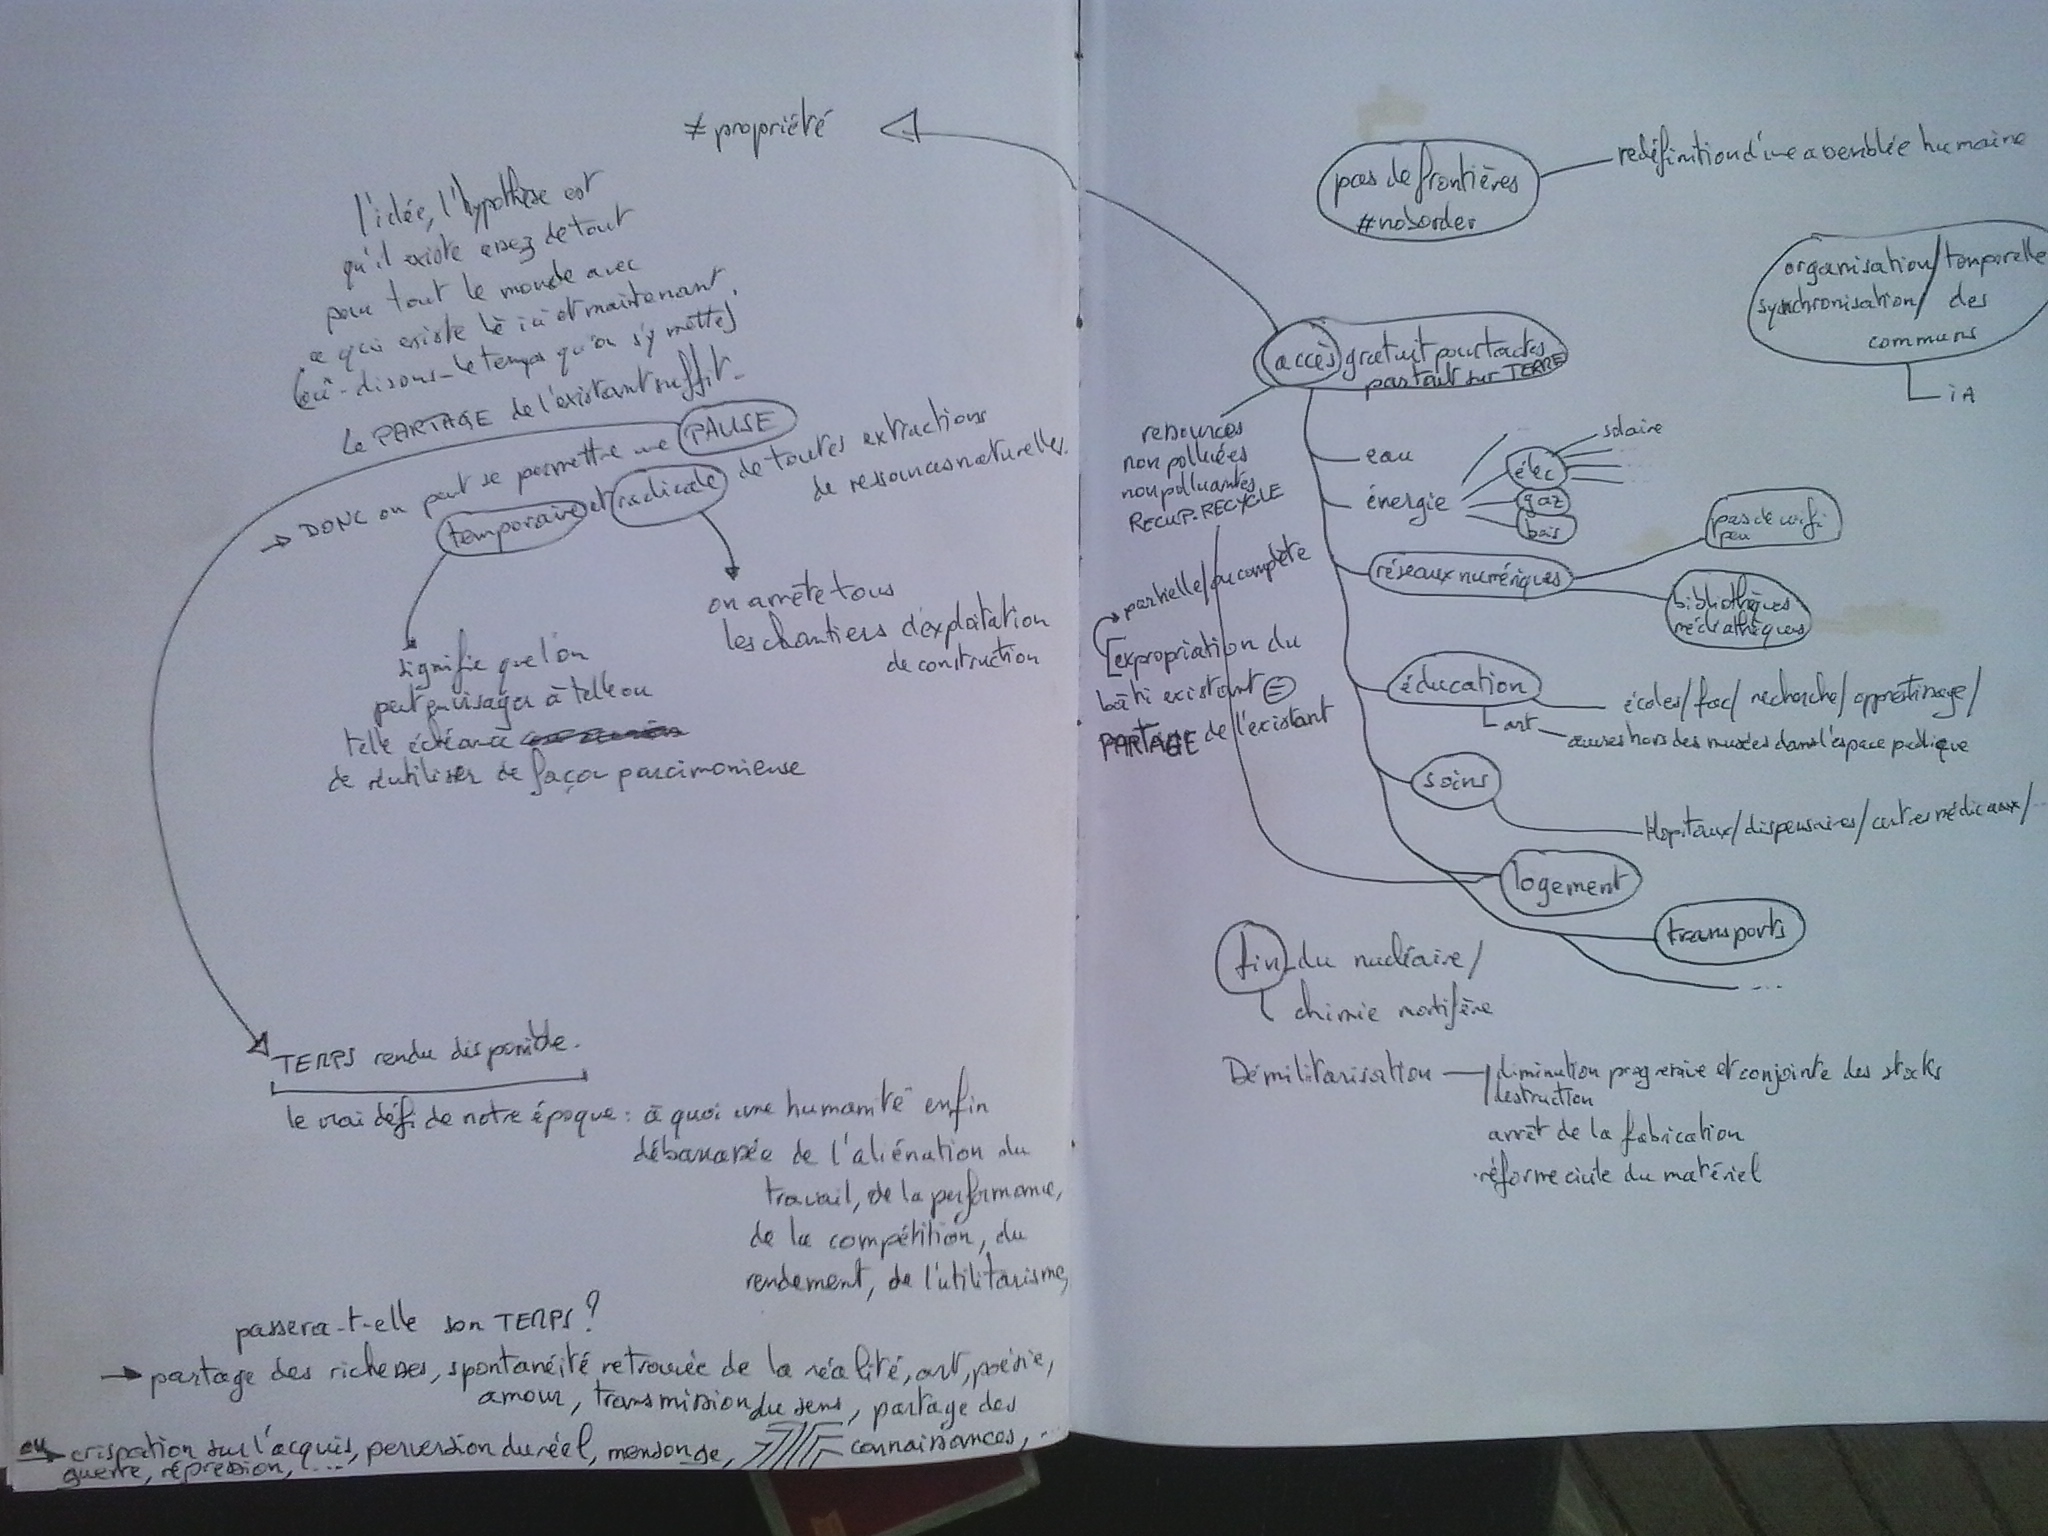 ≠ propriété
l'idée, l'hypothèse est
qu'il existe assez de tout
pour tout le monde avec
ce qui existe là ici et maintenant.
(ou - disons - le temps qu'on s'y mette)
Le PARTAGE de l'existant suffit -
→ DONC on peut se permettre une PAUSE
temporaire et radicale de toutes extractions
de ressources naturelles.
on arrête tous
les chantiers d'exploitation
de construction
signifie que l'on
peut envisager à telle ou
telle échéance
de réutiliser de façon parcimonieuse
TEMPS rendu disponible.
le vrai défi de notre époque : à quoi une humanité enfin
débarrassée de l'aliénation du
travail, de la performance,
de la compétition, du
rendement, de l'utilitarisme,
passera-t-elle son TEMPS ?
→ partage des richesses, spontanéité retrouvée de la réalité, art, poésie,
amour, transmission du sens, partage des
connaissances, ...
ou → crispation sur l'acquis, perversion du réel, mensonge,
guerre, répression, ....
pas de frontières
#noborder
redéfinition d'une assemblée humaine
organisation/temporelle
synchronisation/ des
communs
iA
accès gratuit pour toutes
partout sur TERRE
ressources
non polluées
non polluantes
RECUP-RECYCLE
eau
énergie
élec
solaire
...
gaz
bois
réseaux numériques
pas de wifi
peu
bibliothèques
médiathèques
partielle/ou complète
[expropriation du
bâti existant =
PARTAGE de l'existant
éducation
écoles/fac/recherche/apprentissage/
art
œuvres hors des musées dans l'espace publique
soins
Hopitaux/dispensaires/centres médicaux/...
logement
transports
....
fin du nucléaire/
chimie mortifère
Démilitarisation
diminution progressive et conjointe des stocks
destruction
arrêt de la fabrication
réforme civile du matériel